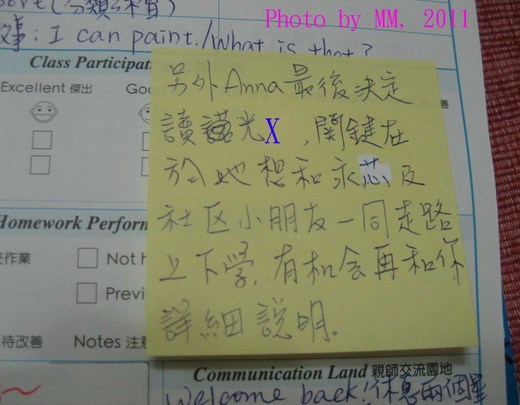 Photo by MM, 2011
: I can paint./What is that?
Class Participat
Excellent 傑出
Go
另外Anna最後決定
讀 光X,関鍵在
於她想和永芯及
社区小朋友一同走路
上下學,有机会再和你
詳細説明.
Homework Perform
作業
Not h
Previ
待改善
Notes 注意
Communication Land 親師交流園地
Welcome back!休息兩個星